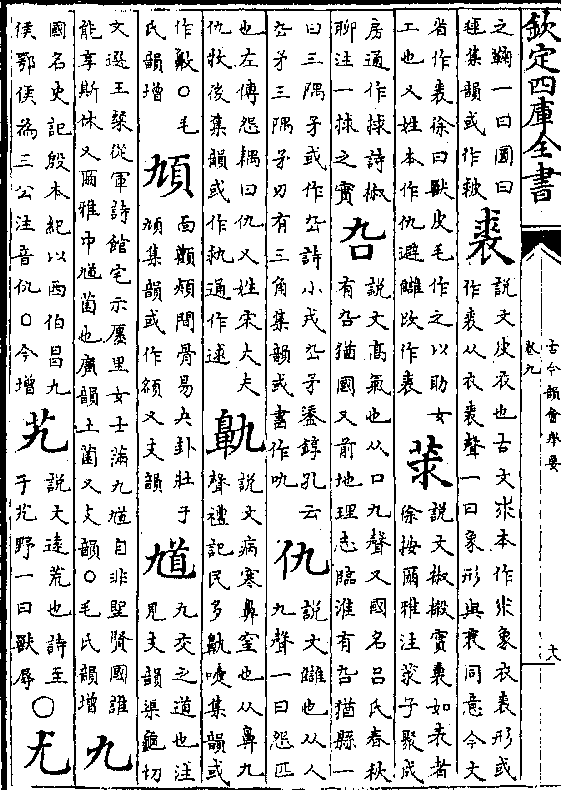 欽定四庫全書
古今韻會舉要
卷九
十八
之鞠一曰圜曰
毬集韻或作
裘
說文皮衣也古文求本作求象衣裘形或
作裘从衣求聲一曰象形與衰同意今文
省作裘徐曰獸皮毛作之以助女
工也又姓本作仇避讎改作裘
莍
說文椒樧實裹如裘者
徐按爾雅注莍子聚成
房通作捄詩椒
聊注一捄之實
叴
說文高氣也从口九聲又國名吕氏春秋
有叴猶國又前地理志臨淮有叴猶縣一
曰三隅矛或作厹詩小戎厹矛鋈錞孔云
厹矛三隅矛刃有三角集韻或書作叴
仇
說文讎也从人
九聲一曰怨匹
也左傳怨耦曰仇又姓宋大夫
仇牧後集韻或作執通作逑
鼽
說文病寒鼻窒也从鼻九
聲禮記民多鼽嚏集韻或
作○毛
氏韻增
頄
面顴頰間骨易夬卦壯于
頄集韻或作頯又支韻
馗
九交之道也注
見支韻渠龜切
文選王粲從軍詩館宅示廛里女士滿九馗自非聖賢國誰
能享斯休又爾雅中馗菌也廣韻土菌又支韻○毛氏韻增
九
國名史記殷本紀以西伯昌九
侯鄂侯為三公注音仇○今增
艽
說文遠荒也詩至
于艽野一曰獸蓐
○尤